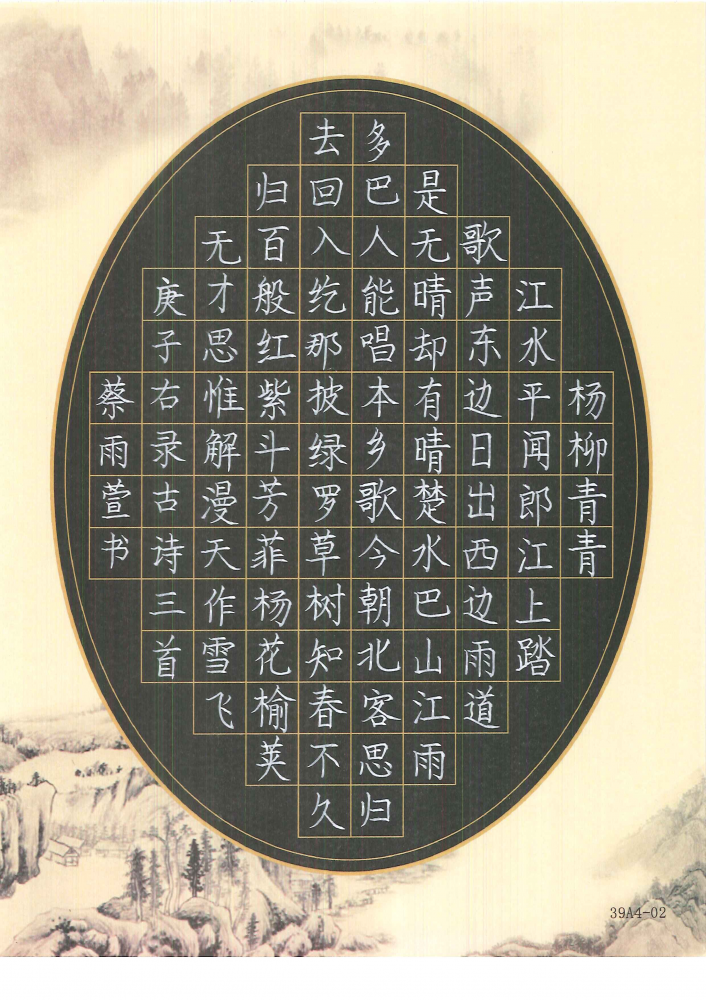 杨柳青青
江水平闻郎江上踏
歌声东边日出西边雨道
是无晴却有晴楚水巴山江雨
多巴人能唱本乡歌今朝北客思归
去回入纥那披绿罗草树知春不久
归百般红紫斗芳菲杨花榆荚
无才思惟解漫天作雪飞
庚子右录古诗三首
蔡雨萱书
39A4-02